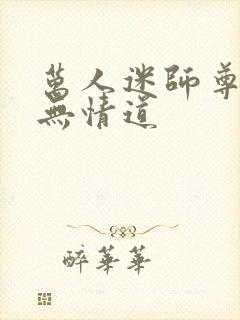 萬人迷師尊
無情道
醉華華